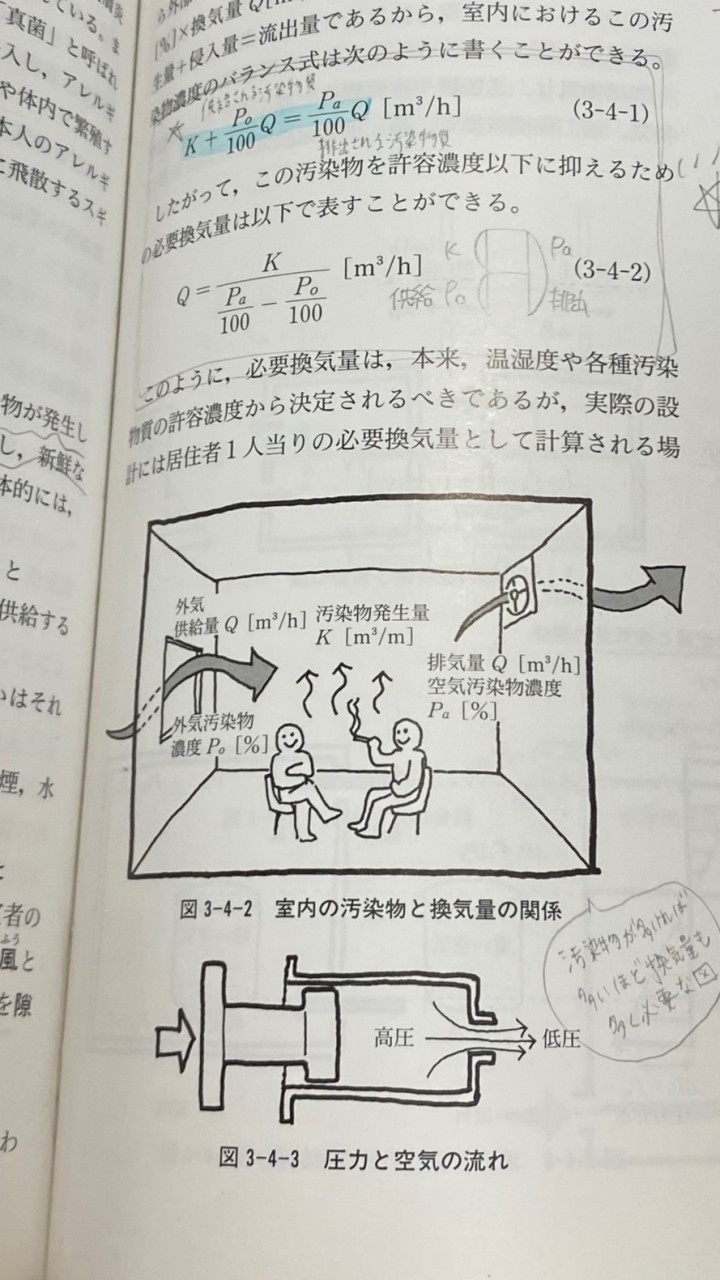 ている。ま
「真菌」と呼ばれ
入し，アレルギ
や体内で繁殖す
本人のアレルギ
に飛散するスギ
物が発生し
し，新鮮な
体的には，
と
供給する
いはそれ
煙，水
者の
ふう
風と
を隙
わ
[%]×換気量
生量+侵入量=流出量であるから，室内におけるこの汚
染物濃度のバランス式は次のように書くことができる。
供給される汚染物質
K + Po/100 Q = Pa/100 Q [m³/h] (3-4-1)
排出される汚染物質
したがって，この汚染物を許容濃度以下に抑えるため
の必要換気量は以下で表すことができる。
Q = K / (Pa/100 − Po/100) [m³/h] (3-4-2)
K Pa
供給 Po 排出
このように，必要換気量は，本来，温湿度や各種汚染
物質の許容濃度から決定されるべきであるが，実際の設
計には居住者1人当りの必要換気量として計算される場
外気
供給量 Q [m³/h]
汚染物発生量
K [m³/m]
排気量 Q [m³/h]
空気汚染物濃度
Pa [%]
外気汚染物
濃度 Po [%]
図 3-4-2 室内の汚染物と換気量の関係
汚染物が多ければ
多いほど換気量も
多く必要な
高圧
低圧
図 3-4-3 圧力と空気の流れ